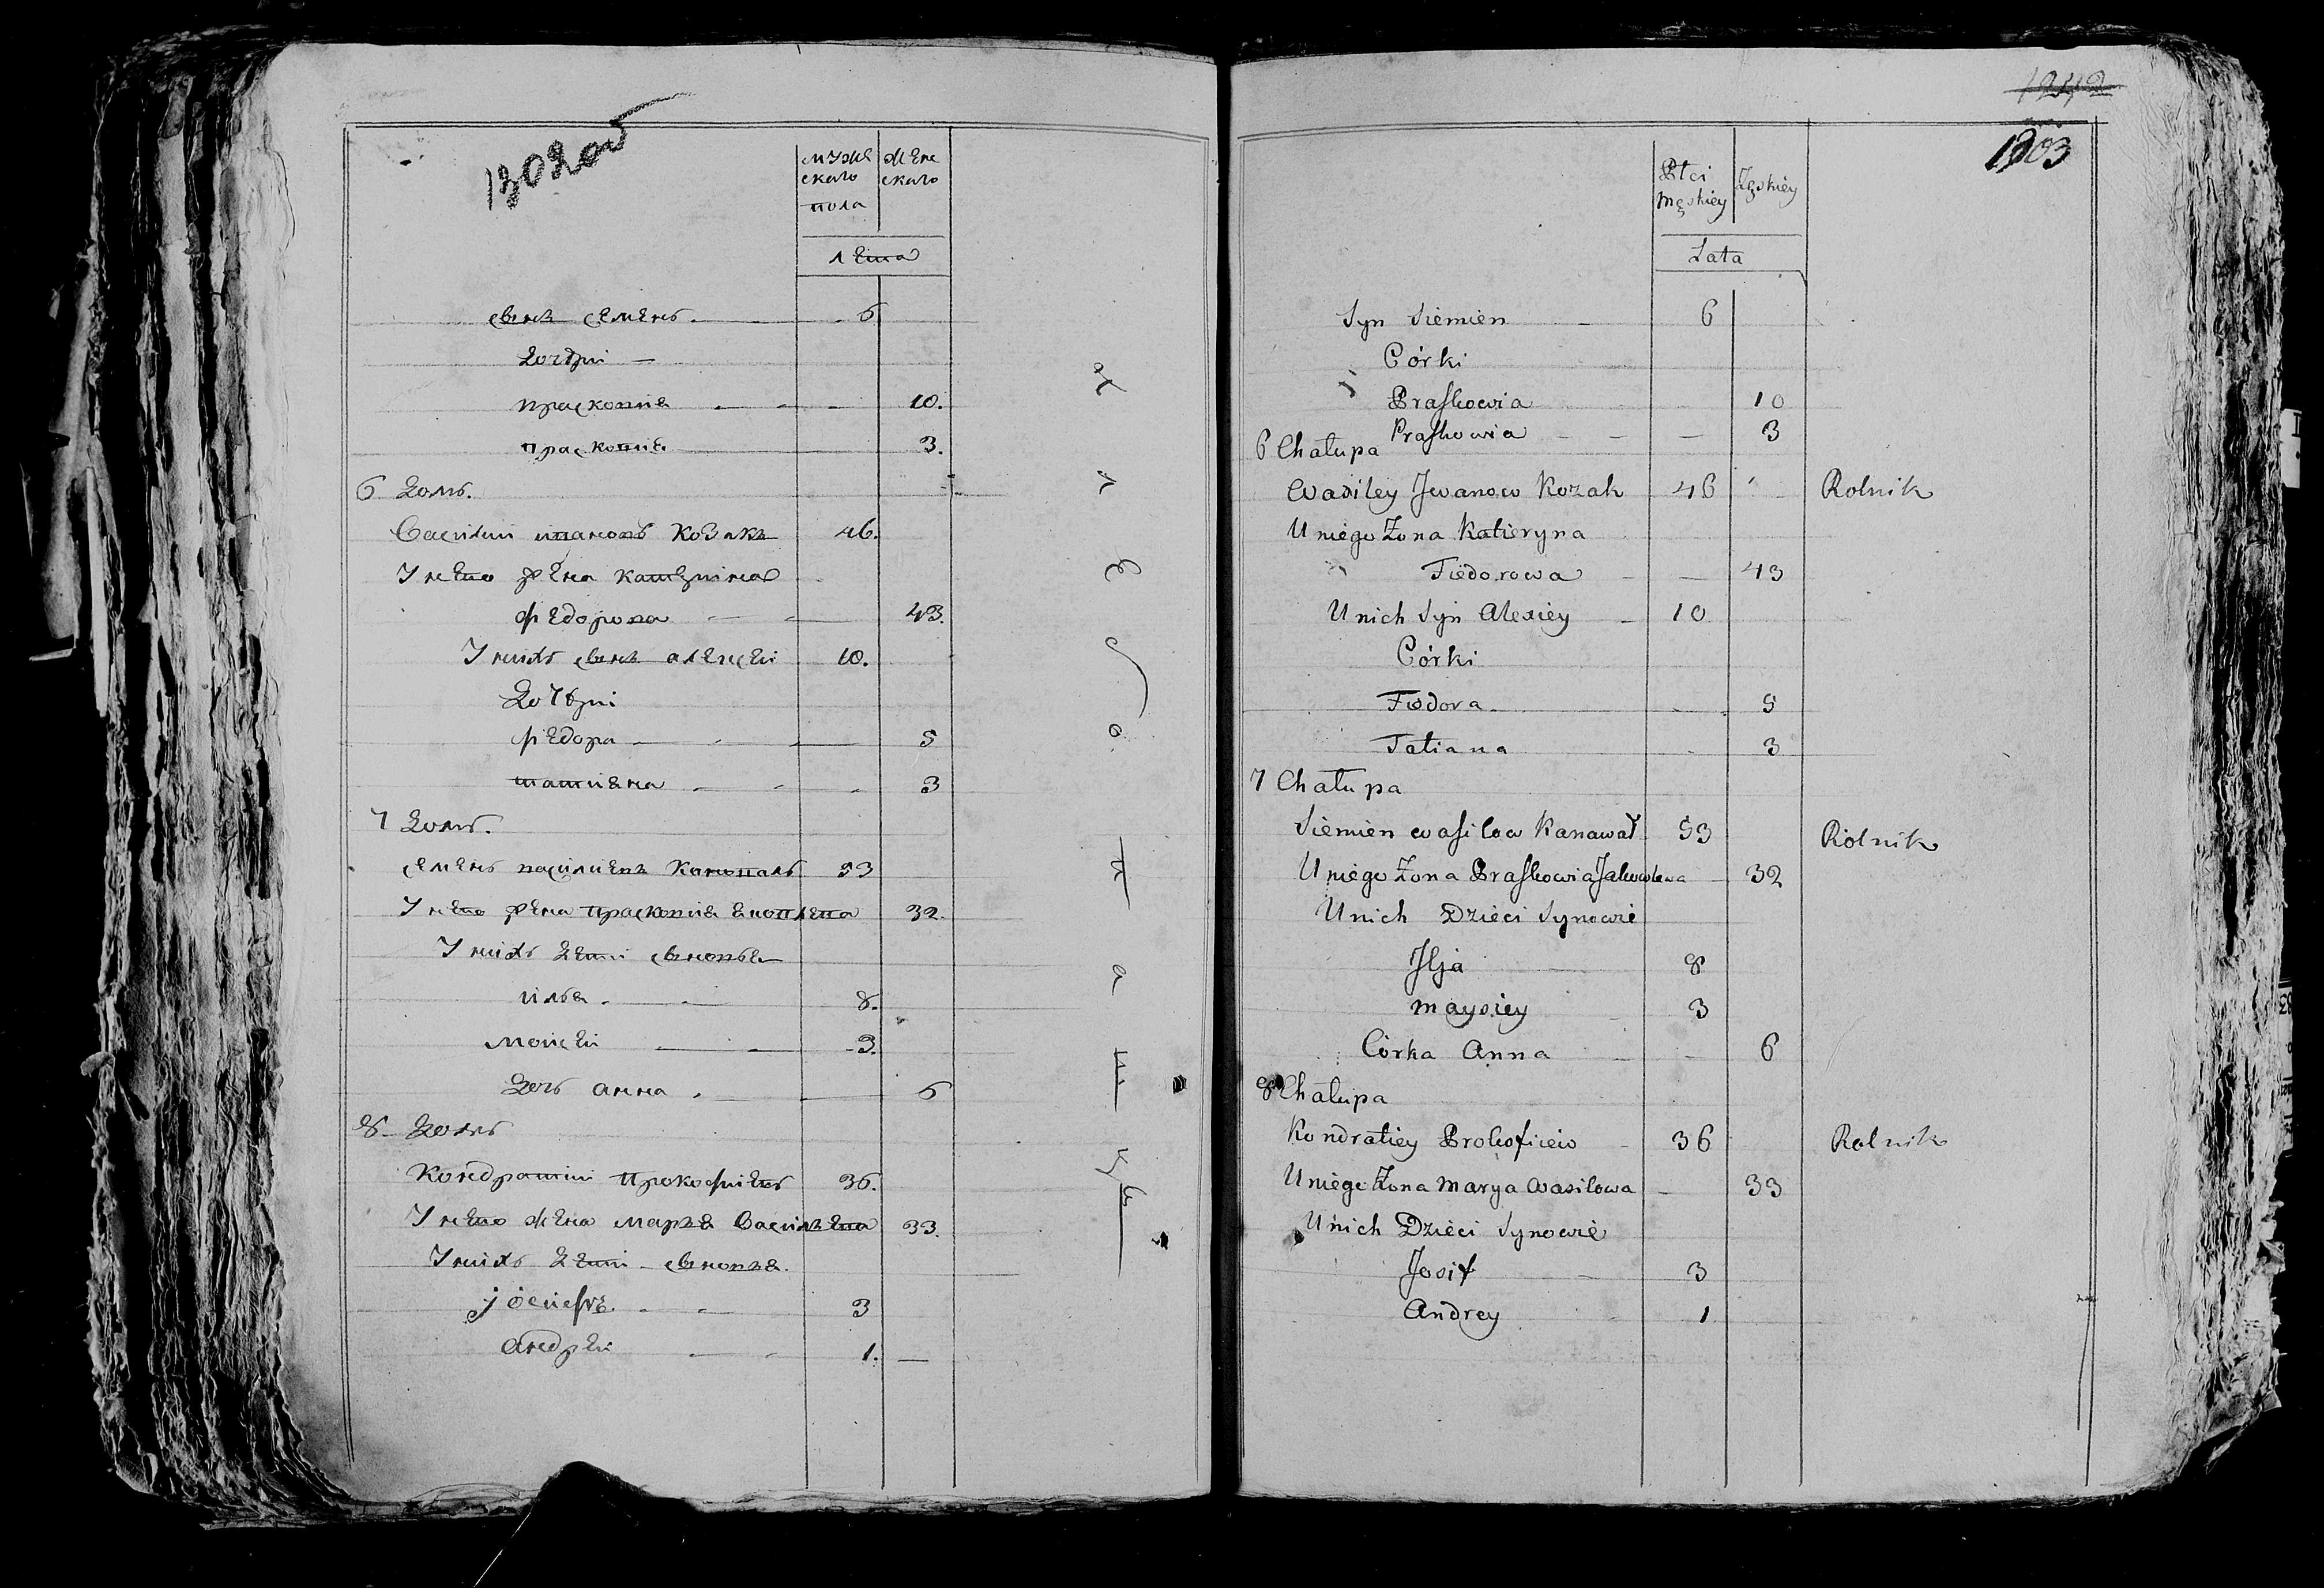 муже
скаго
пола
жене
скаго
лета
сынъ семенъ 6
дочери
прасковия 10.
прасковия 3.
6 домъ.
Василии ивановъ козакъ 46.
У нево жена катерина
федорова 43.
У нихъ сынъ алексеи 10.
дочери
федора 5
татиана 3
7 домъ.
семенъ василиевъ коновалъ 53
У нево жена прасковия яковлева 32.
У нихъ дети сыновья
илья 8.
моисеи 3.
дочь анна 6
8 домъ
кондратии прокофиевъ 36.
У нево жена марья василъева 33.
У нихъ дети сыновья
иосифъ 3
андреи 1.
1242
1203
Płci
męskiey
Żęskiey
Lata
Syn Siemien 6
Córki
Praskowia 10
Praskowia 3
6 Chałupa
Wasiley Jwanow Kozak 46 Rolnik
Uniego Żona Katieryna
Fiedorowa 43
Unich Syn Alexiey 10
Córki
Fiedora 5
Tatiana 3
7 Chałupa
Siemien Wasilow Kanawał 53 Rolnik
Uniego Żona Praskowia Jakowlewa 32
Unich Dzieci Synowie
Jlja 8
Maysiey 3
Córka Anna 6
8 Chałupa
Kondratiey Prokofiew 36 Rolnik
Uniego Żona Marya Wasilowa 33
Unich Dzieci Synowie
Josif 3
Andrey 1